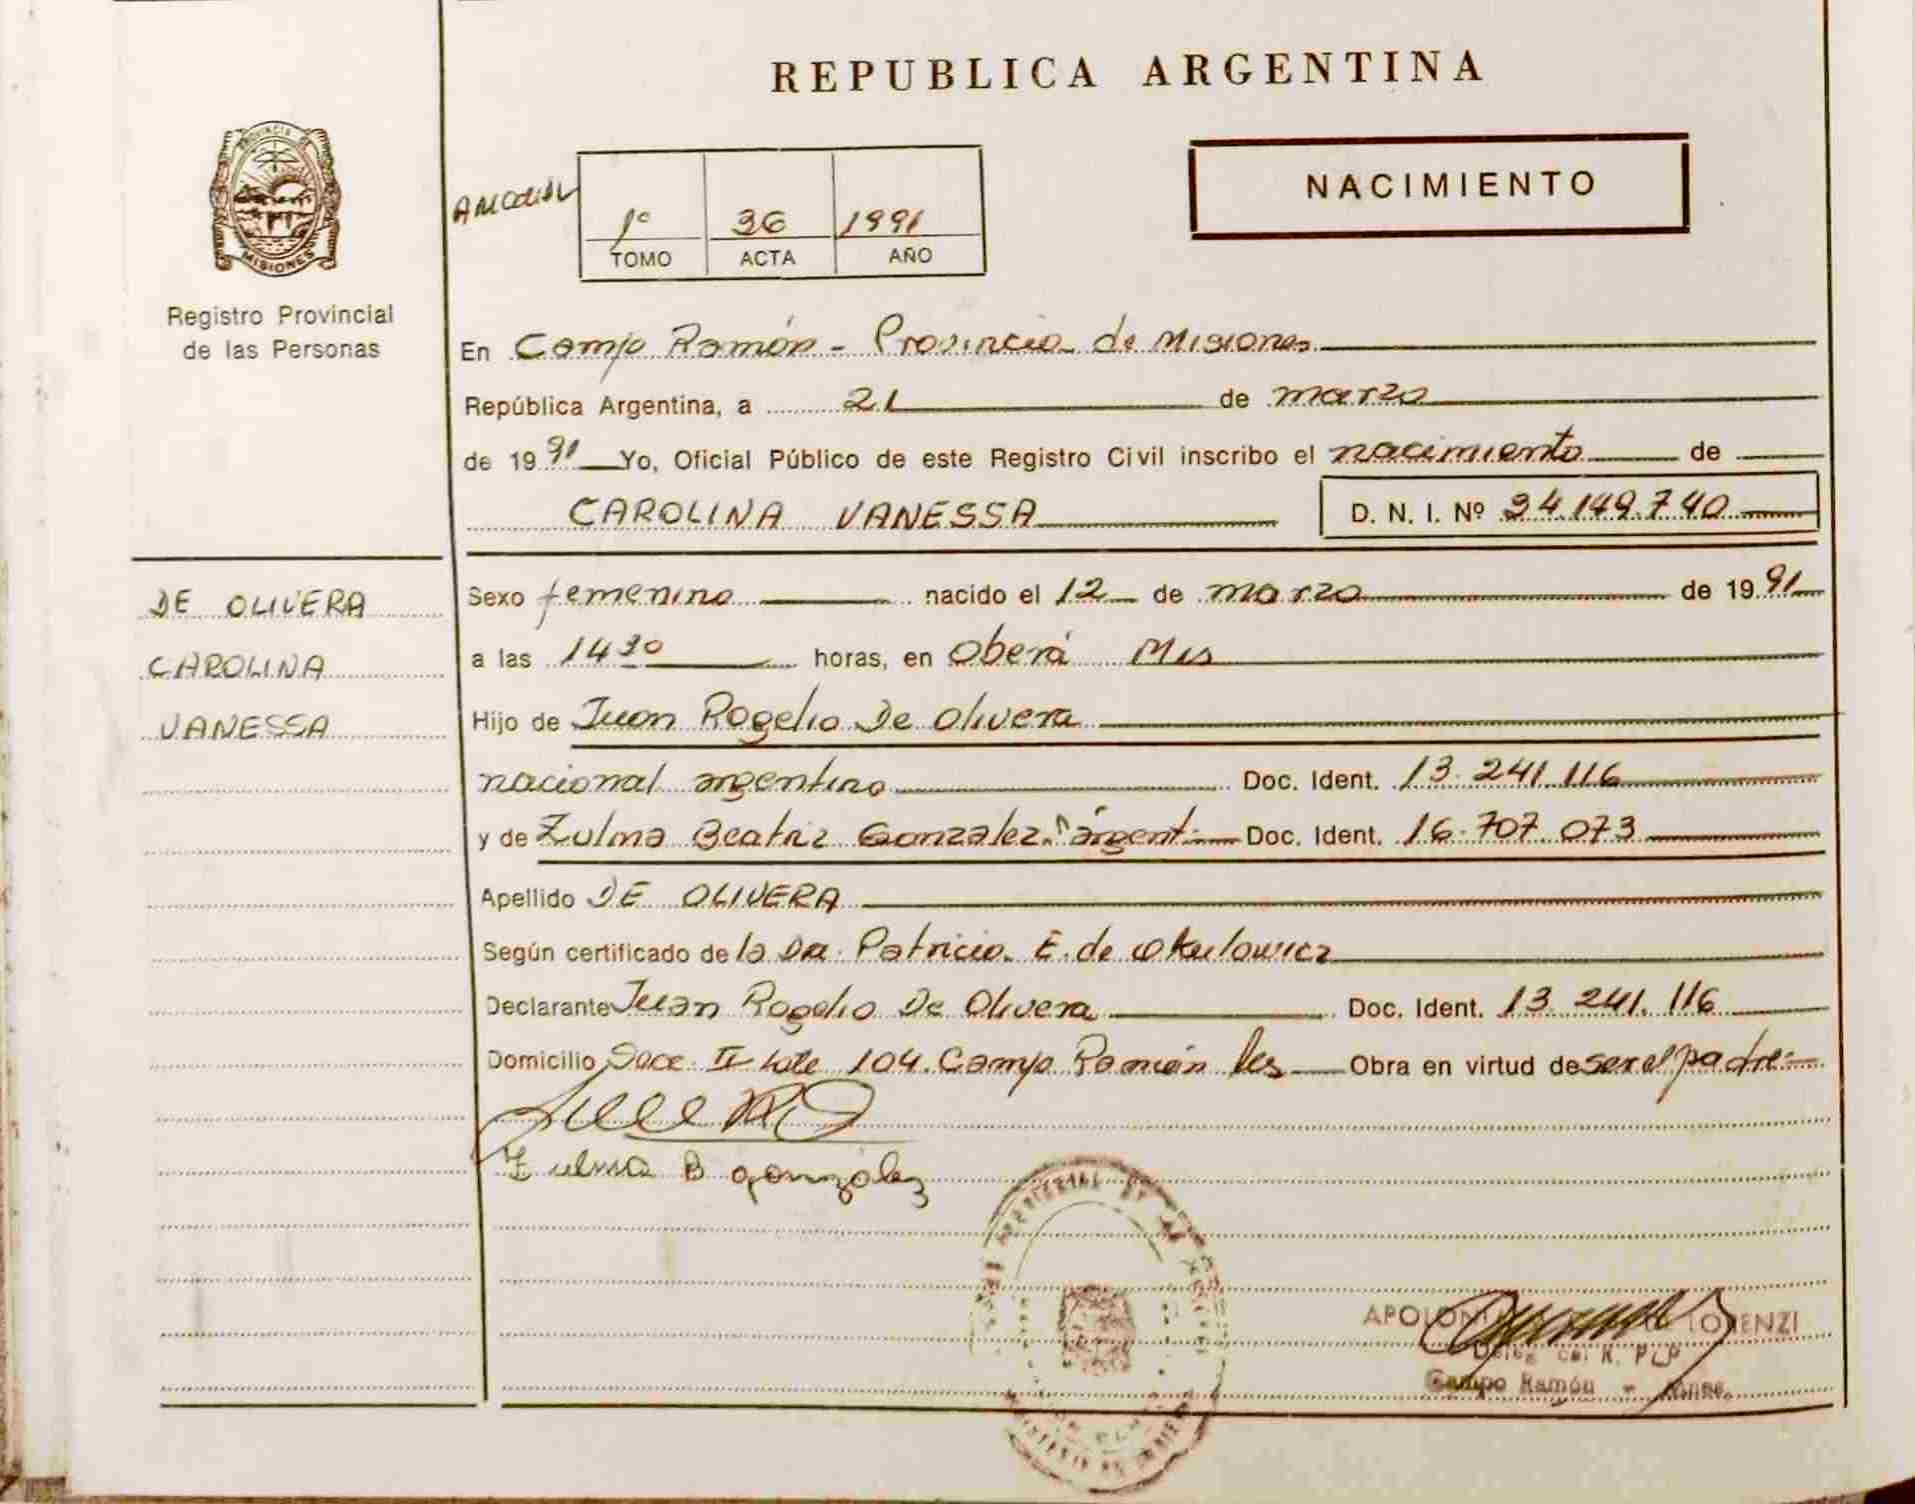 REPUBLICA ARGENTINA
NACIMIENTO
PROVINCIA DE
MISIONES
Registro Provincial
de las Personas
1º 36 1991
TOMO ACTA AÑO
En Campo Ramón - Provincia de Misiones
República Argentina, a 21 de marzo
de 1991 Yo, Oficial Público de este Registro Civil inscribo el nacimiento de
CAROLINA VANESSA D. N. I. Nº 34.149.740
DE OLIVERA
CAROLINA
VANESSA
Sexo femenino nacido el 12 de marzo de 1991
a las 14 30 horas, en Oberá Mis
Hijo de Juan Rogelio De Olivera
nacional argentino Doc. Ident. 13.241.116
y de Zulma Beatriz Gonzalez argent. Doc. Ident. 16.707.073
Apellido DE OLIVERA
Según certificado de la Dra. Patricia E. de Okulowicz
Declarante Juan Rogelio De Olivera Doc. Ident. 13.241.116
Domicilio Secc. II Lote 104. Campo Ramón Obra en virtud de ser el padre
Zulma B gonzález
APOLONI LORENZI
R. P. P.
Campo Ramón - Mnes.